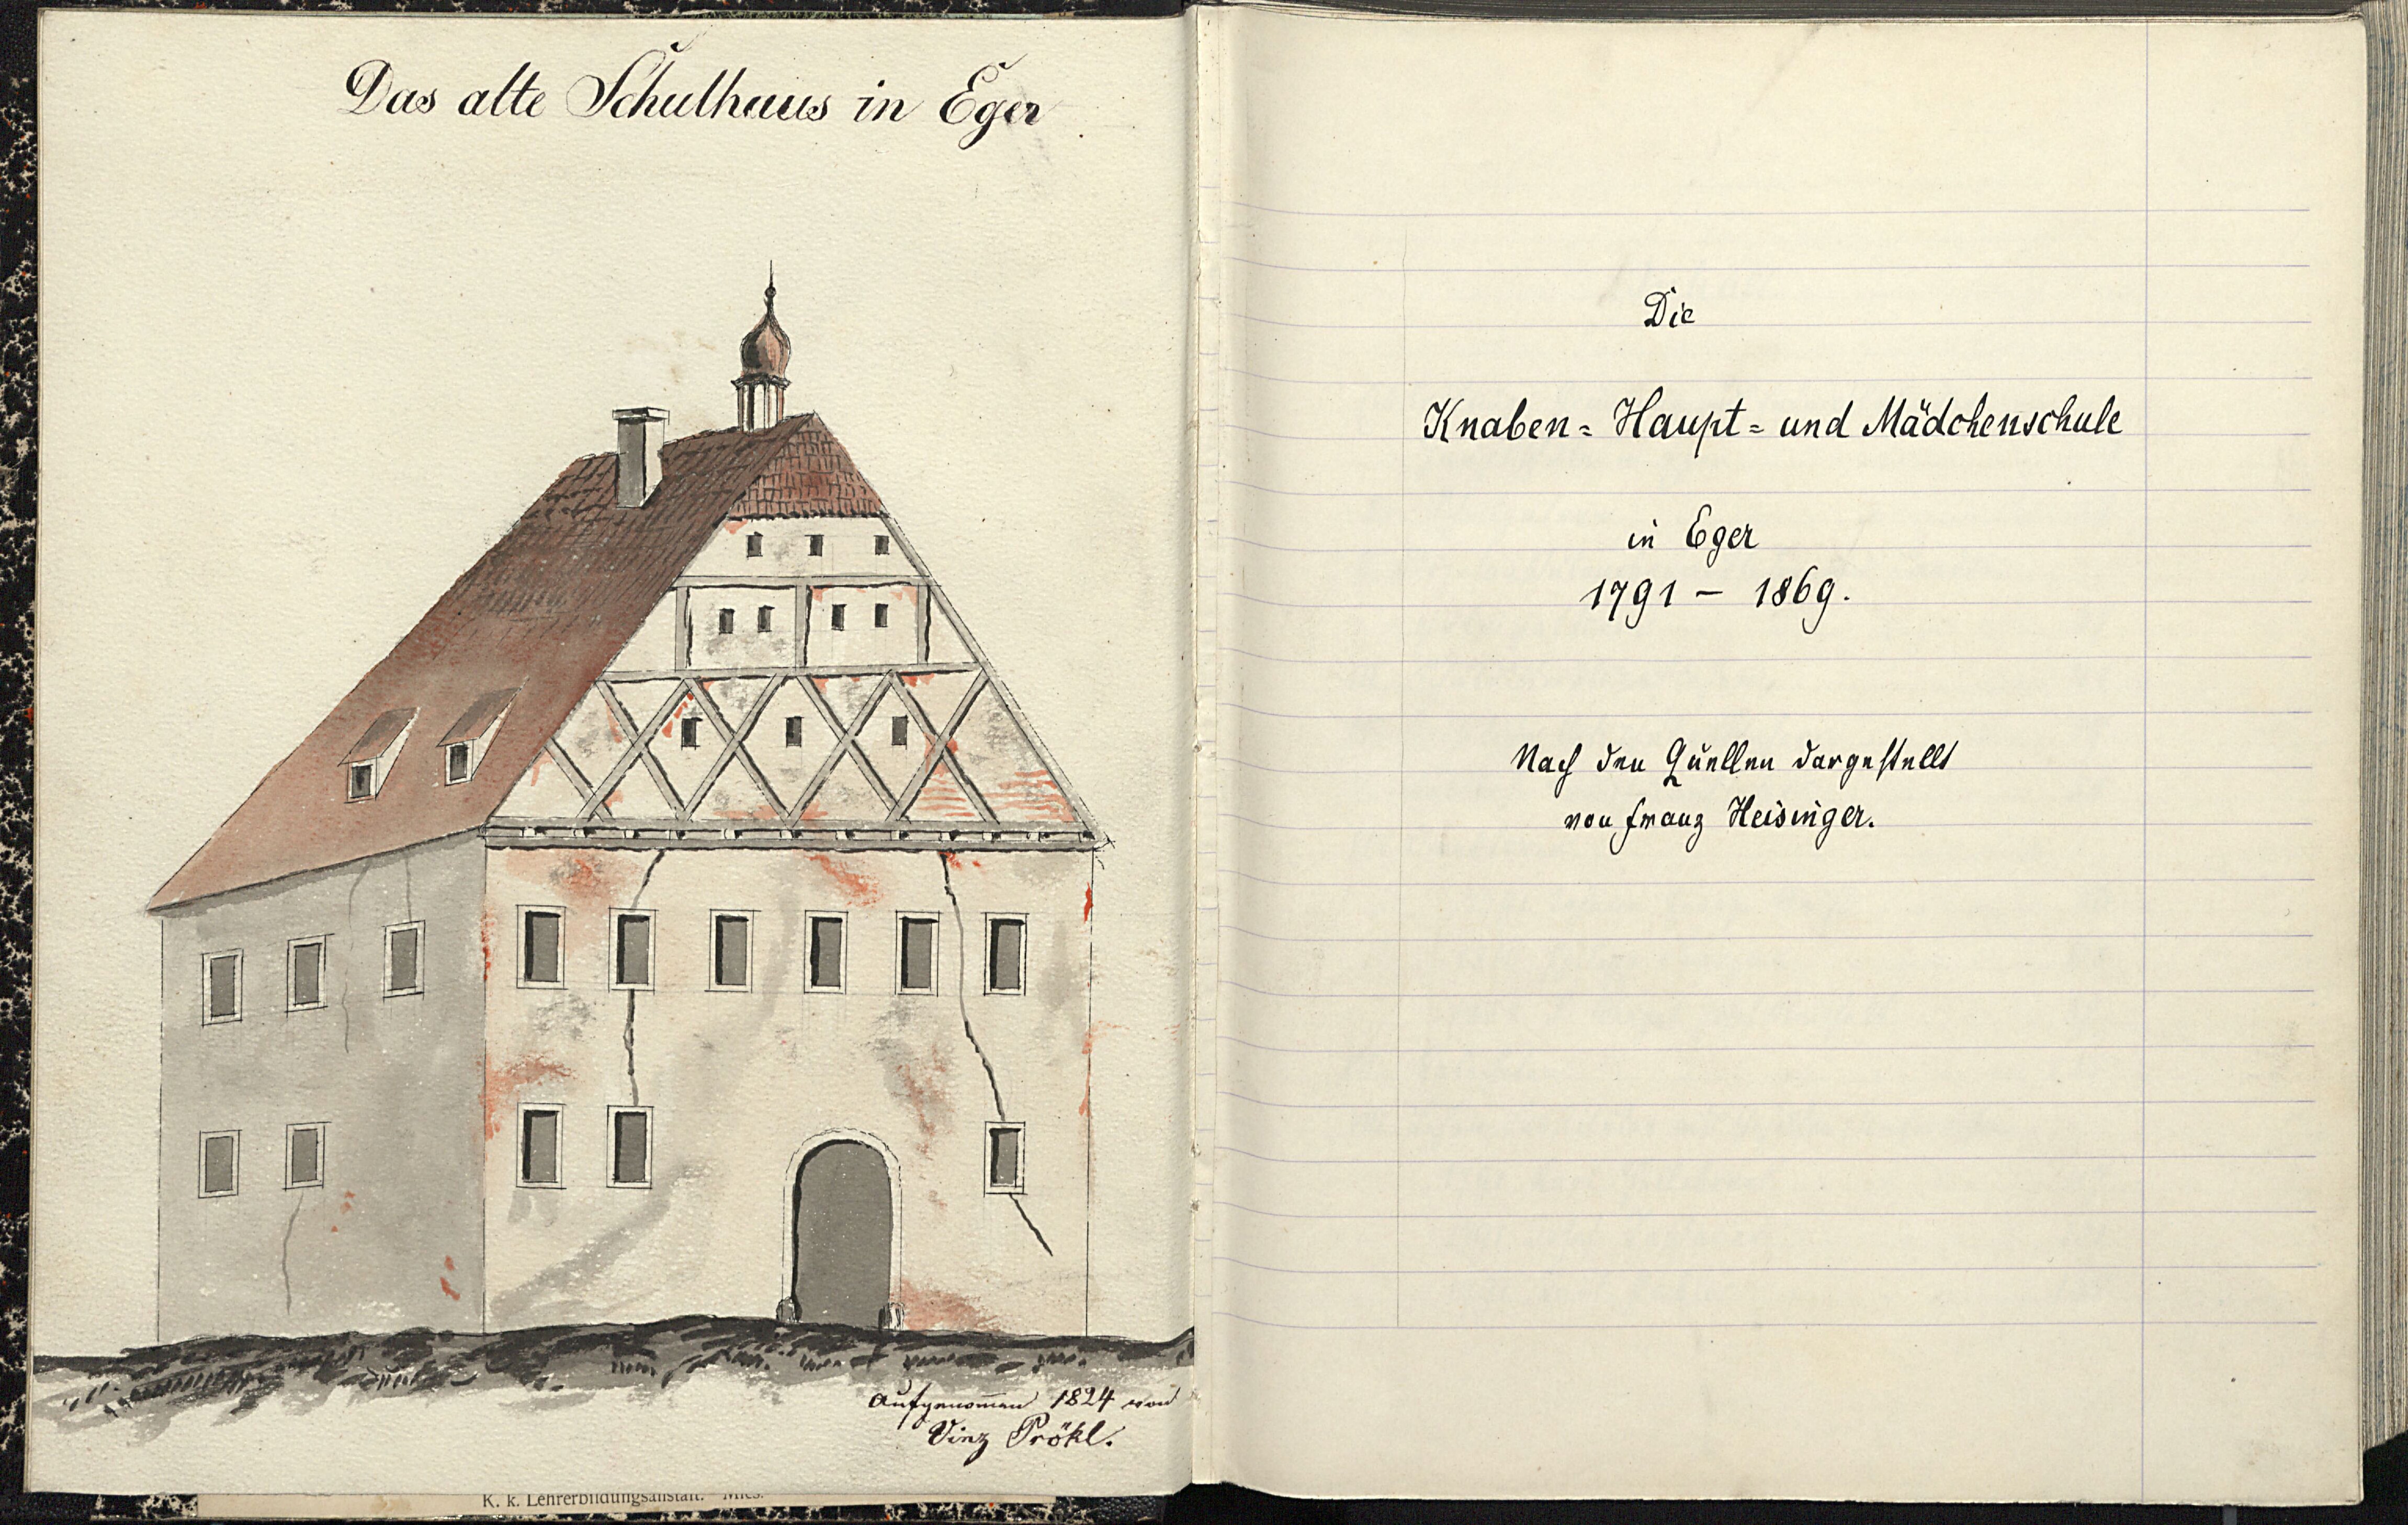 Das alte Schulhaus in Eger
Aufgenom̅en 1824 von
Vinz Prökl.
K. k. Lehrerbildungsanstalt. Mies.
Die
Knaben= Haupt= und Mädchenschule
in Eger
1791 – 1869.
Nach den Quellen dargestellt
von Franz Heisinger.